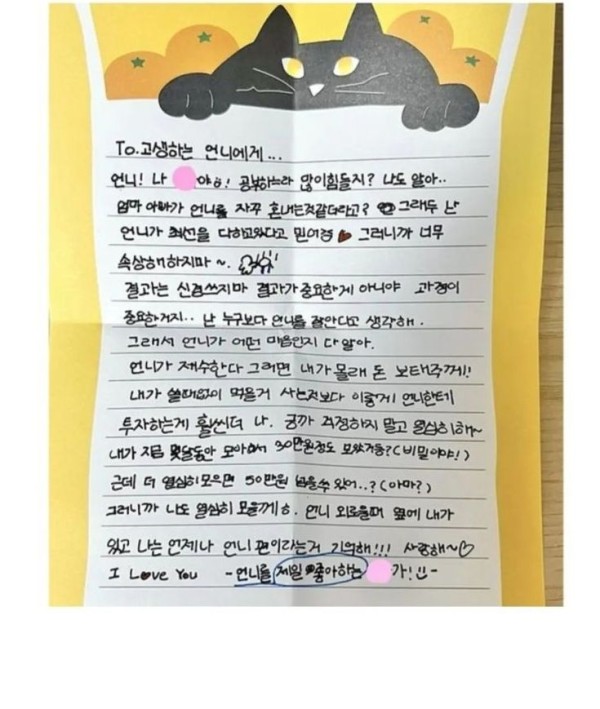 To. 고생하는 언니에게...
언니! 나 야ㅎ! 공부하느라 많이힘들지? 나도 알아..
엄마 아빠가 언니를 자꾸 혼내는것같더라고? 그래두 난
언니가 최선을 다하고있다고 믿어경 그러니까 너무
속상해하지마~.
결과는 신경쓰지마 결과가 중요한게 아니야 과정이
중요한거지.. 난 누구보다 언니를 잘안다고 생각해.
그래서 언니가 어떤 마음인지 다 알아.
언니가 재수한다 그러면 내가 몰래 돈 보태줄께!!
내가 쓸때없이 먹을거 사는것보다 이렇게 언니한테
투자하는게 훨씬더 나. 긍까 걱정하지 말고 열심히해~
내가 지금 몇달동안 모아서 30만원정도 모았거등?(비밀이야!)
근데 더 열심히모으면 50만원 넘을수 있어..?(아마?)
그러니까 나도 열심히 모을께ㅎ. 언니 외로울때 옆에 내가
있고 나는 언제나 언니 편이라는거 기억해!!! 사랑해~♡
I Love You -언니를 제일 좋아하는 가!!-